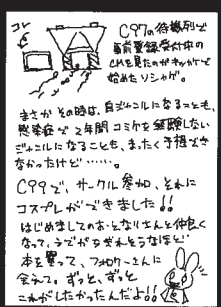 コレ
C97の待機列で
事前登録受付中の
CMを見たのがキッカケで
始めたソシャゲ。
まさかその時は、自ジャンルになることも、
感染症で2年間コミケを経験しない
ジャンルになることも、まったく予想でき
なかったけど……。
C99で、サークル参加、それに
コスプレができました!!
はじめましてのおとなりさんと仲良く
なって、うでがちぎれそうなほど
本を買って、フォロワーさんに
会えて。ずっと、ずっと
これがしたかったんだよ!!